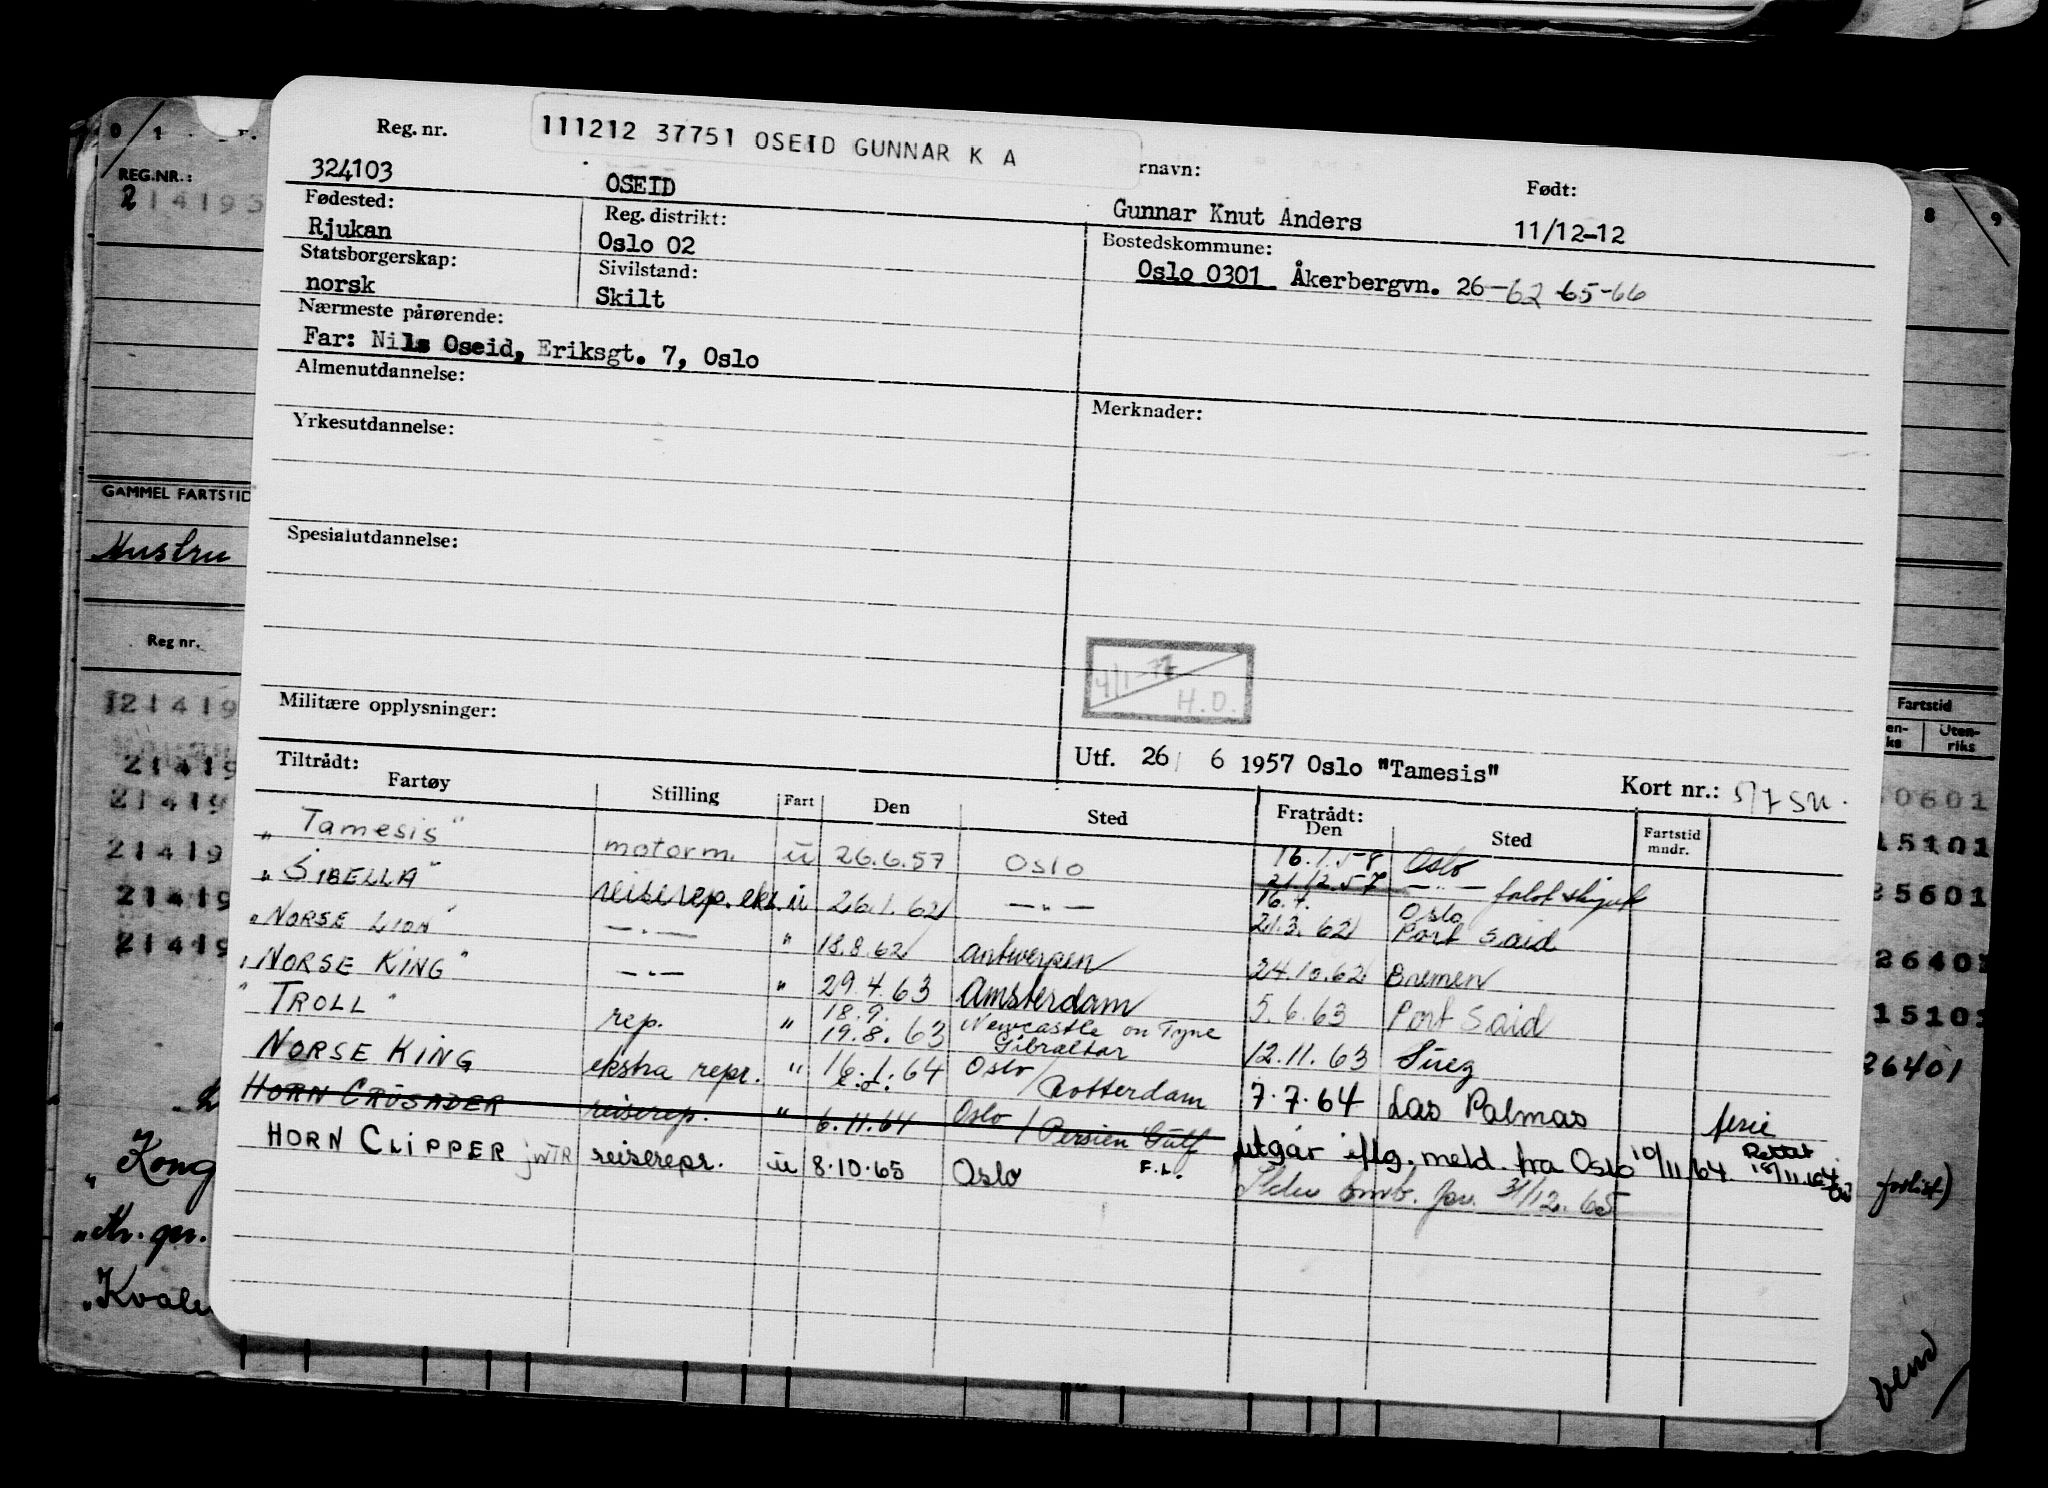 111212 37751 OSEID GUNNAR K A
Reg. nr.
rnavn:
Født:
324103
OSEID
Gunnar Knut Anders
11/12-12
Fødested:
Reg. distrikt:
Bostedskommune:
Rjukan
Oslo 02
Oslo 0301 Åkerbergvn. 26-62 65-66
Statsborgerskap:
Sivilstand:
norsk
Skilt
Nærmeste pårørende:
Far: Nils Oseid, Eriksgt. 7, Oslo
Almenutdannelse:
Merknader:
Yrkesutdannelse:
Spesialutdannelse:
H.O.
Militære opplysninger:
Utf. 26/ 6 1957 Oslo "Tamesis"
Kort nr.:
Tiltrådt:
Fratrådt:
Fartøy Stilling Fart Den Sted Den Sted Fartstid mndr.
"Tamesis" motorm. ü 26.6.57 Oslo 16.1.58 Oslo
21.12.57 —"—
"SIBELLA" reiserep. eks. ü 26.1.62 —"— 16.4. Oslo
21.3.62 Port Said
"NORSE LION" —"— " 18.8.62 Antwerpen 24.10.62 Bremen
"NORSE KING" —"— " 29.4.63 Amsterdam 5.6.63 Port Said
"TROLL" rep. " 18.9. Newcastle on Tyne
19.8.63 Gibraltar 12.11.63 Suez
NORSE KING ekstra repr. " 16.1.64 Oslo/Rotterdam 7.7.64 Las Palmas ferie
HORN CRUSADER reiserep. " 6.11.64 Oslo/Persien Gulf utgår iflg. meld. fra Oslo 10/11 64. Rettet 18/11.64
HORN CLIPPER jWTR reiserepr. ü 8.10.65 Oslo F.L.
31/12.65
REG.NR.:
214195
GAMMEL FARTSTID
Reg nr.
21419
21419
21419
21419
21419
21419
Kong
Kvale
0 1
8 9
Fartstid
Uten-
riks
0601
15101
25601
26401
15101
26401
forlist)